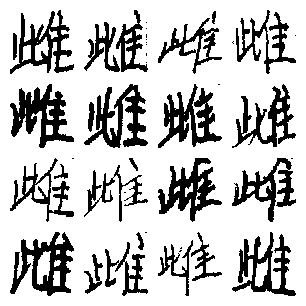 雌雌雌雌
雌雌雌雌
雌雌雌雌
雌雌雌雌